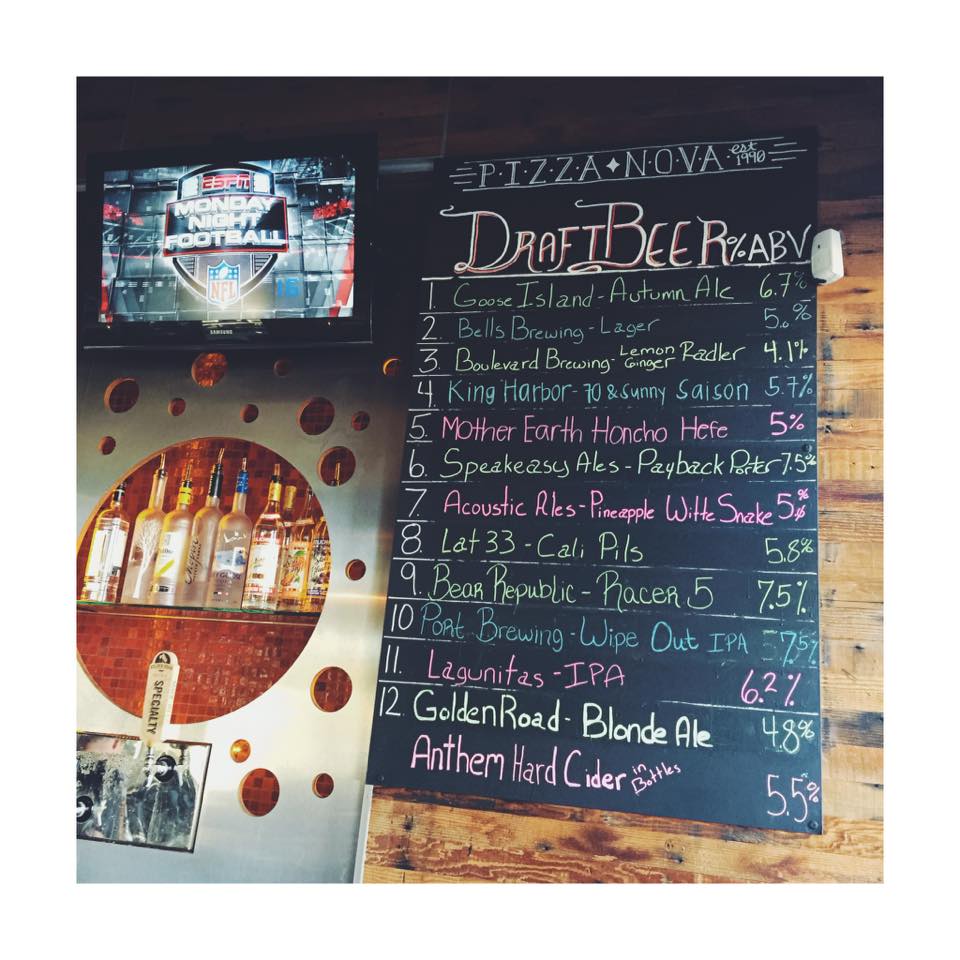 ESPN
MONDAY
NIGHT
FOOTBALL
NFL
SAMSUNG
SPECIALTY
P·I·Z·Z·A N·O·V·A est 1990
DRAFT BEER % ABV
1. Goose Island - Autumn Ale 6.7%
2. Bells Brewing - Lager 5.0%
3. Boulevard Brewing - Lemon Ginger Radler 4.1%
4. King Harbor - 70 & Sunny Saison 5.7%
5. Mother Earth Honcho Hefe 5%
6. Speakeasy Ales - Payback Porter 7.5%
7. Acoustic Ales - Pineapple Witte Snake 5%
8. Lat 33 - Cali Pils 5.8%
9. Bear Republic - Racer 5 7.5%
10 Port Brewing - Wipe Out IPA 7.5%
11. Lagunitas - IPA 6.2%
12. Golden Road - Blonde Ale 4.8%
Anthem Hard Cider in Bottles 5.5%